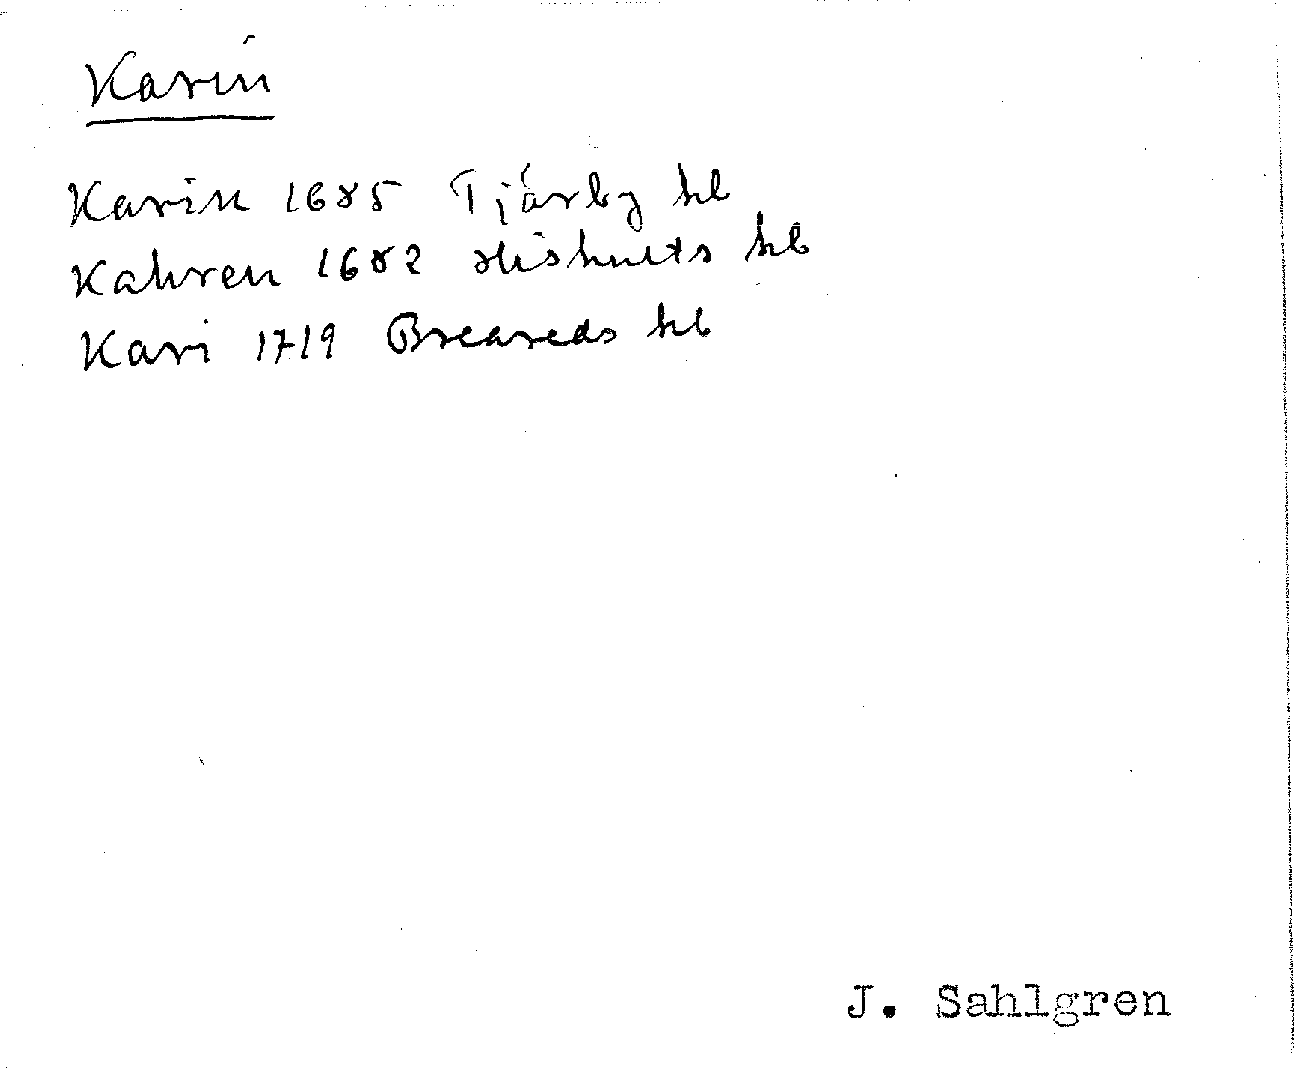 Karin
Karin 1685 Tjärby kb
Kahren 1682 Hishults kb
Kari 1719 Breareds kb
J. Sahlgren